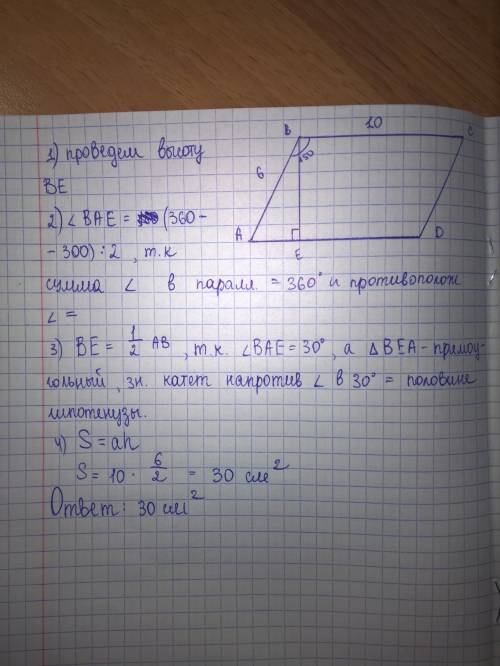 1) проведем высоту
BE
2) ∠BAE = (360 -
- 300) : 2 , т.к
сумма ∠ в паралл. = 360° и противополож
∠ =
3) BE = 1/2 AB , т.к. ∠BAE = 30° , а △BEA - прямоу-
гольный , зн. катет напротив ∠ в 30° = половине
гипотенузы.
4) S = ah
S = 10 · 6/2 = 30 см²
Ответ: 30 см²
B
10
C
150
6
A
E
D